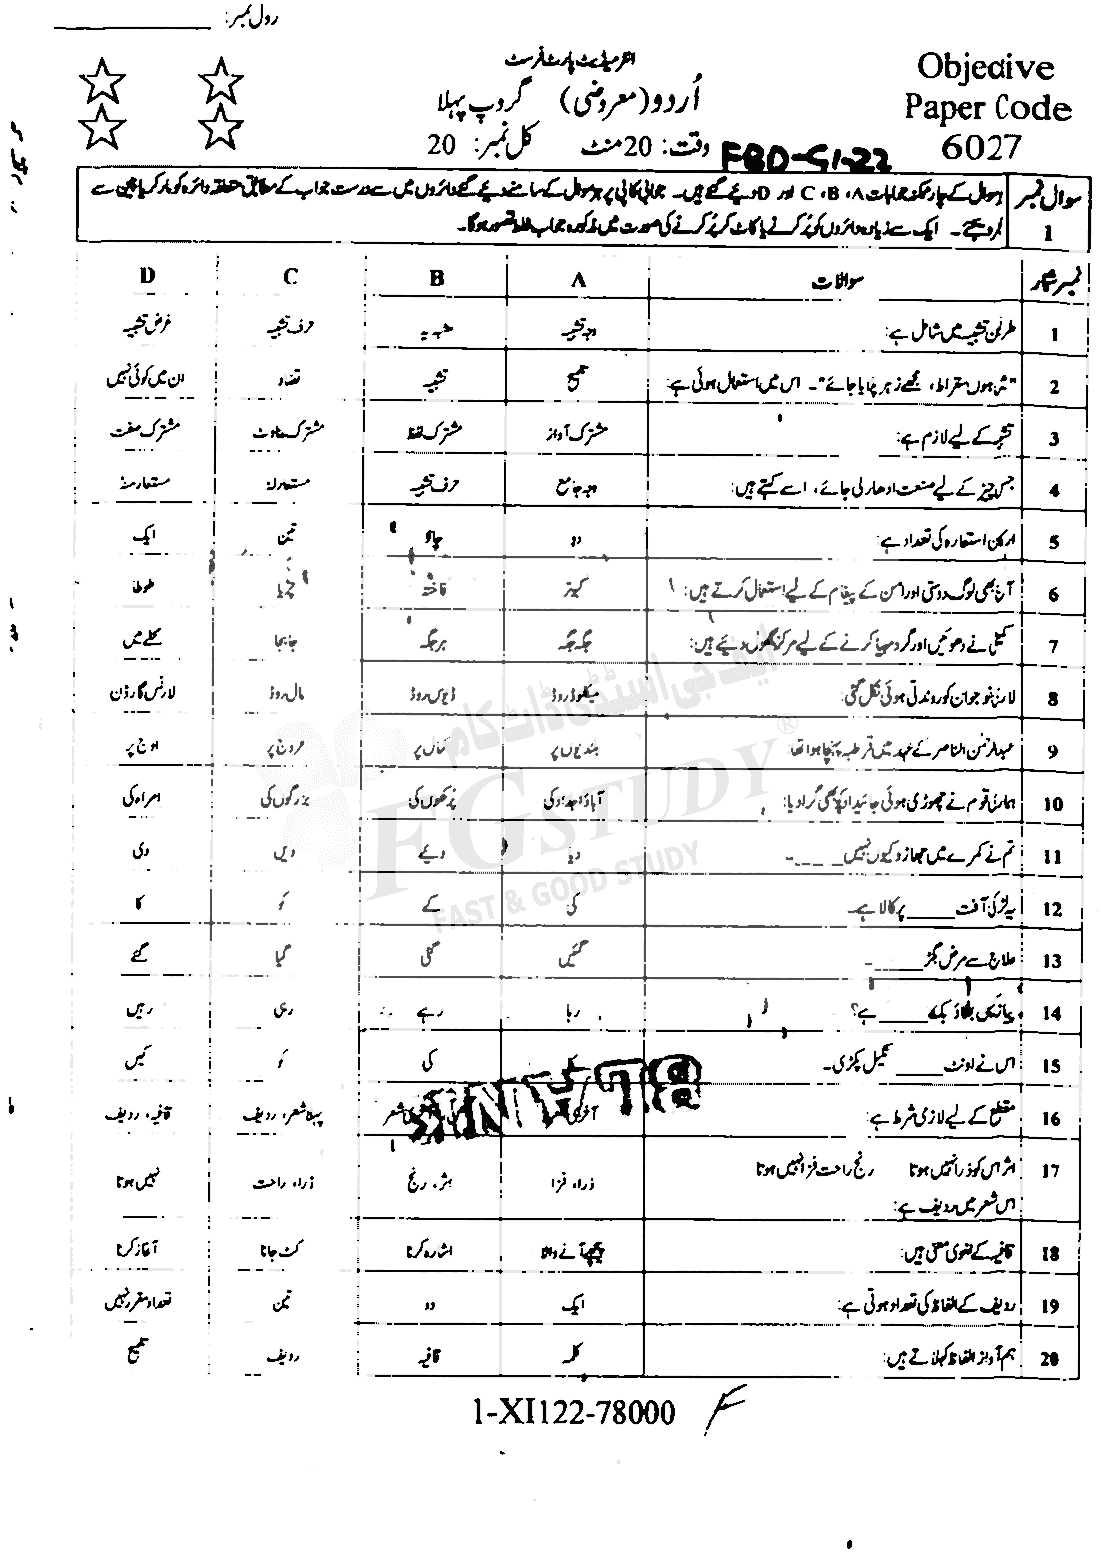 رول نمبر: __________
انٹرمیڈیٹ پارٹ فرسٹ
اُردو (معروضی) گروپ پہلا
وقت: 20 منٹ کل نمبر: 20
Objective
Paper Code
6027
FBD-G1-22
سوال نمبر 1
ہر سوال کے چار ممکنہ جوابات A، B، C اور D دیئے گئے ہیں۔ جوابی کاپی پر ہر سوال کے سامنے دیئے گئے دائروں میں سے درست جواب کے مطابق متعلقہ دائرہ کو مارکر یا پین سے
بھر دیجئے۔ ایک سے زیادہ دائروں کو پُر کرنے یا کاٹ کر پُر کرنے کی صورت میں مذکورہ جواب غلط تصور ہوگا۔
نمبر شمار سوالات A B C D
1 طرفین تشبیہ میں شامل ہے: وجہ تشبیہ مشبہ بہ حرف تشبیہ غرض تشبیہ
2 "میں ہوں سقراط، مجھے زہر پلایا جائے"۔ اس میں استعمال ہوئی ہے: تلمیح تشبیہ تضاد ان میں کوئی نہیں
3 تشبیہ کے لیے لازم ہے: مشترک آواز مشترک لفظ مشترک عادت مشترک صفت
4 جس چیز کے لیے صفت ادھار لی جائے، اسے کہتے ہیں: وجہ جامع حرف تشبیہ مستعار لہ مستعار منہ
5 ارکان استعارہ کی تعداد ہے: دو چار تین ایک
6 آج بھی لوگ دوستی اور امن کے پیغام کے لیے استعمال کرتے ہیں: کبوتر فاختہ چڑیا طوطا
7 کمیٹی نے دھوئیں اور گرد مہیا کرنے کے لیے مرکز کھول دیئے ہیں: جگہ جگہ ہر جگہ جا بجا محلے میں
8 لاری نوجوان کو روندتی ہوئی نکل گئی: میکلوڈ روڈ ڈیوس روڈ مال روڈ لارنس گارڈن
9 عبدالرحمٰن الناصر کے عہد میں قرطبہ پہنچا ہوا تھا بلندیوں پر کمال پر عروج پر اوج پر
10 ہماری قوم نے چھوڑی ہوئی جائیداد کو بھی گرا دیا: آباؤ اجداد کی پُرکھوں کی بزرگوں کی امراء کی
11 تم نے کمرے میں جھاڑو کیوں نہیں ____۔ دیا دیئے دیں دی
12 یہ لڑکی آفت ____ پرکالا ہے۔ کی کے کو کا
13 علاج سے مرض بگڑ ____۔ گئیں گئی گیا گئے
14 ____ ہے؟ رہا رہے رہی رہیں
15 اس نے اونٹ ____ نکیل پکڑی۔ کی کو کیں
16 مقطع کے لیے لازمی شرط ہے: پہلا شعر، ردیف قافیہ، ردیف
17 اثر اس کو ذرا نہیں ہوتا رنج راحت فزا نہیں ہوتا
اس شعر میں ردیف ہے: ذرا، فزا اثر، رنج ذرا، راحت نہیں ہوتا
18 قافیہ کے لغوی معنی ہیں: پیچھے آنے والا اشارہ کرنا کٹ جانا آغاز کرنا
19 ردیف کے الفاظ کی تعداد ہوتی ہے: ایک دو تین تعداد مقرر نہیں
20 ہم آواز الفاظ کہلاتے ہیں: کلمہ قافیہ ردیف تلمیح
BLANK
ایف جی اسٹڈی ڈاٹ کام
FG STUDY ®
FAST & GOOD STUDY
1-XI122-78000